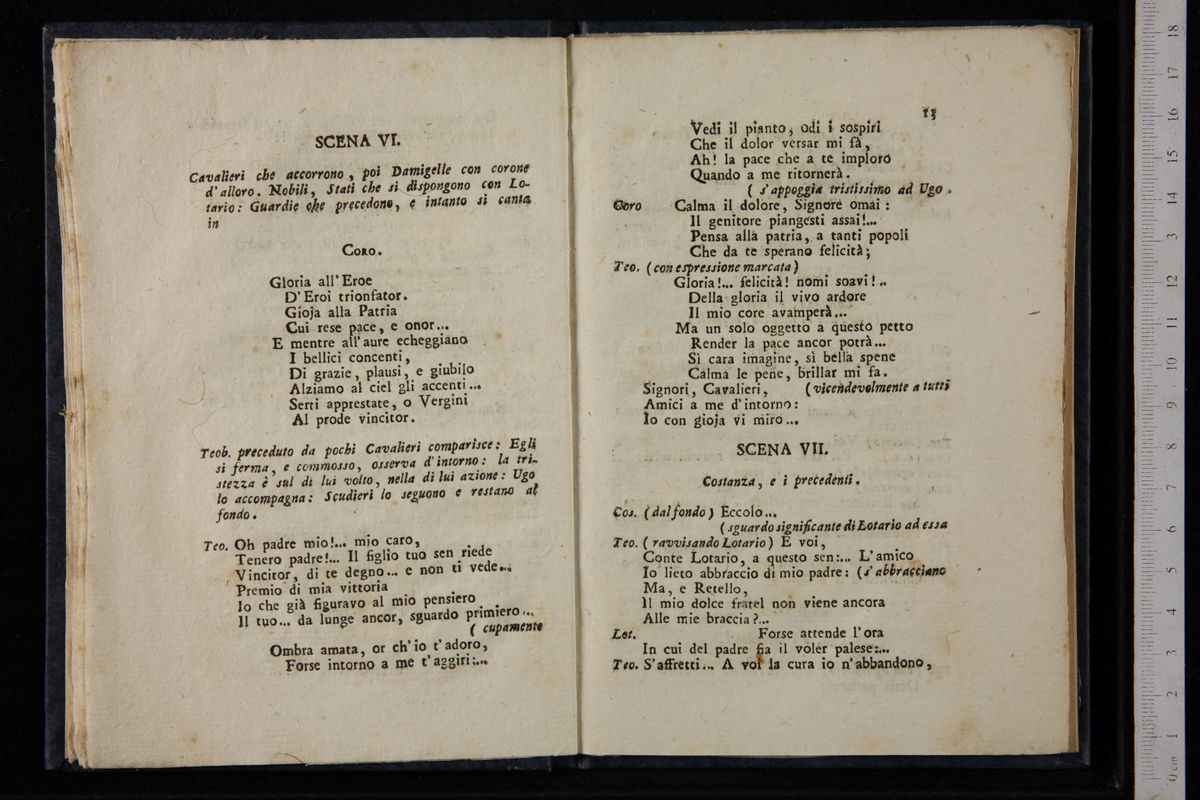 SCENA VI.
Cavalieri che accorrono, poi Damigelle con corone
d'alloro. Nobili, Stati che si dispongono con Lo-
tario: Guardie che precedono, e intanto si canta
in
CORO.
Gloria all'Eroe
D'Eroi trionfator.
Gioja alla Patria
Cui rese pace, e onor...
E mentre all'aure echeggiano
I bellici concenti,
Di grazie, plausi, e giubilo
Alziamo al ciel gli accenti...
Serti apprestate, o Vergini
Al prode vincitor.
Teob. preceduto da pochi Cavalieri comparisce: Egli
si ferma, e commosso, osserva d'intorno: la tri-
stezza è sul di lui volto, nella di lui azione: Ugo
lo accompagna: Scudieri lo seguono e restano al
fondo.
Teo. Oh padre mio!... mio caro,
Tenero padre!... Il figlio tuo sen riede
Vincitor, di te degno... e non ti vede...
Premio di mia vittoria
Io che già figuravo al mio pensiero
Il tuo... da lunge ancor, sguardo primiero...
( cupamente
Ombra amata, or ch'io t'adoro,
Forse intorno a me t'aggiri:...
13
Vedi il pianto, odi i sospiri
Che il dolor versar mi fà,
Ah! la pace che a te imploro
Quando a me ritornerà.
( s'appoggia tristissimo ad Ugo.
Coro Calma il dolore, Signore omai:
Il genitore piangesti assai!...
Pensa alla patria, a tanti popoli
Che da te sperano felicità;
Teo. (con espressione marcata)
Gloria!... felicità! nomi soavi!..
Della gloria il vivo ardore
Il mio core avamperà...
Ma un solo oggetto a questo petto
Render la pace ancor potrà...
Sì cara imagine, sì bella spene
Calma le pene, brillar mi fa.
Signori, Cavalieri, (vicendevolmente a tutti
Amici a me d'intorno:
Io con gioja vi miro...
SCENA VII.
Costanza, e i precedenti.
Cos. (dal fondo) Eccolo...
(sguardo significante di Lotario ad essa
Teo. (ravvisando Lotario) E voi,
Conte Lotario, a questo sen:... L'amico
Io lieto abbraccio di mio padre: (s'abbracciano
Ma, e Retello,
Il mio dolce fratel non viene ancora
Alle mie braccia?...
Lot. Forse attende l'ora
In cui del padre fia il voler palese:...
Teo. S'affretti... A voi la cura io n'abbandono,
0 cm 1 2 3 4 5 6 7 8 9 10 11 12 13 14 15 16 17 18